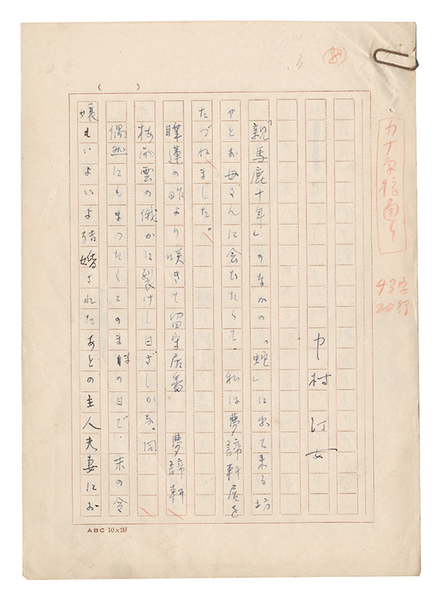 カナ原稿通り
43字
20行
中村汀女
「親馬鹿十年」のなかの「蛇」に出て来る坊
やとお母さんに会ひたくて、私は夢諦軒居を
たづねました。
睡蓮の昨より咲きて留守居番 夢諦軒
梅雨雲の俄かに裂け日ざしかな 同
偶然にもまつたくこのまゝの日で、末の令
嬢もいよいよ結婚されたあとの主人夫妻にお
ABC 10×20